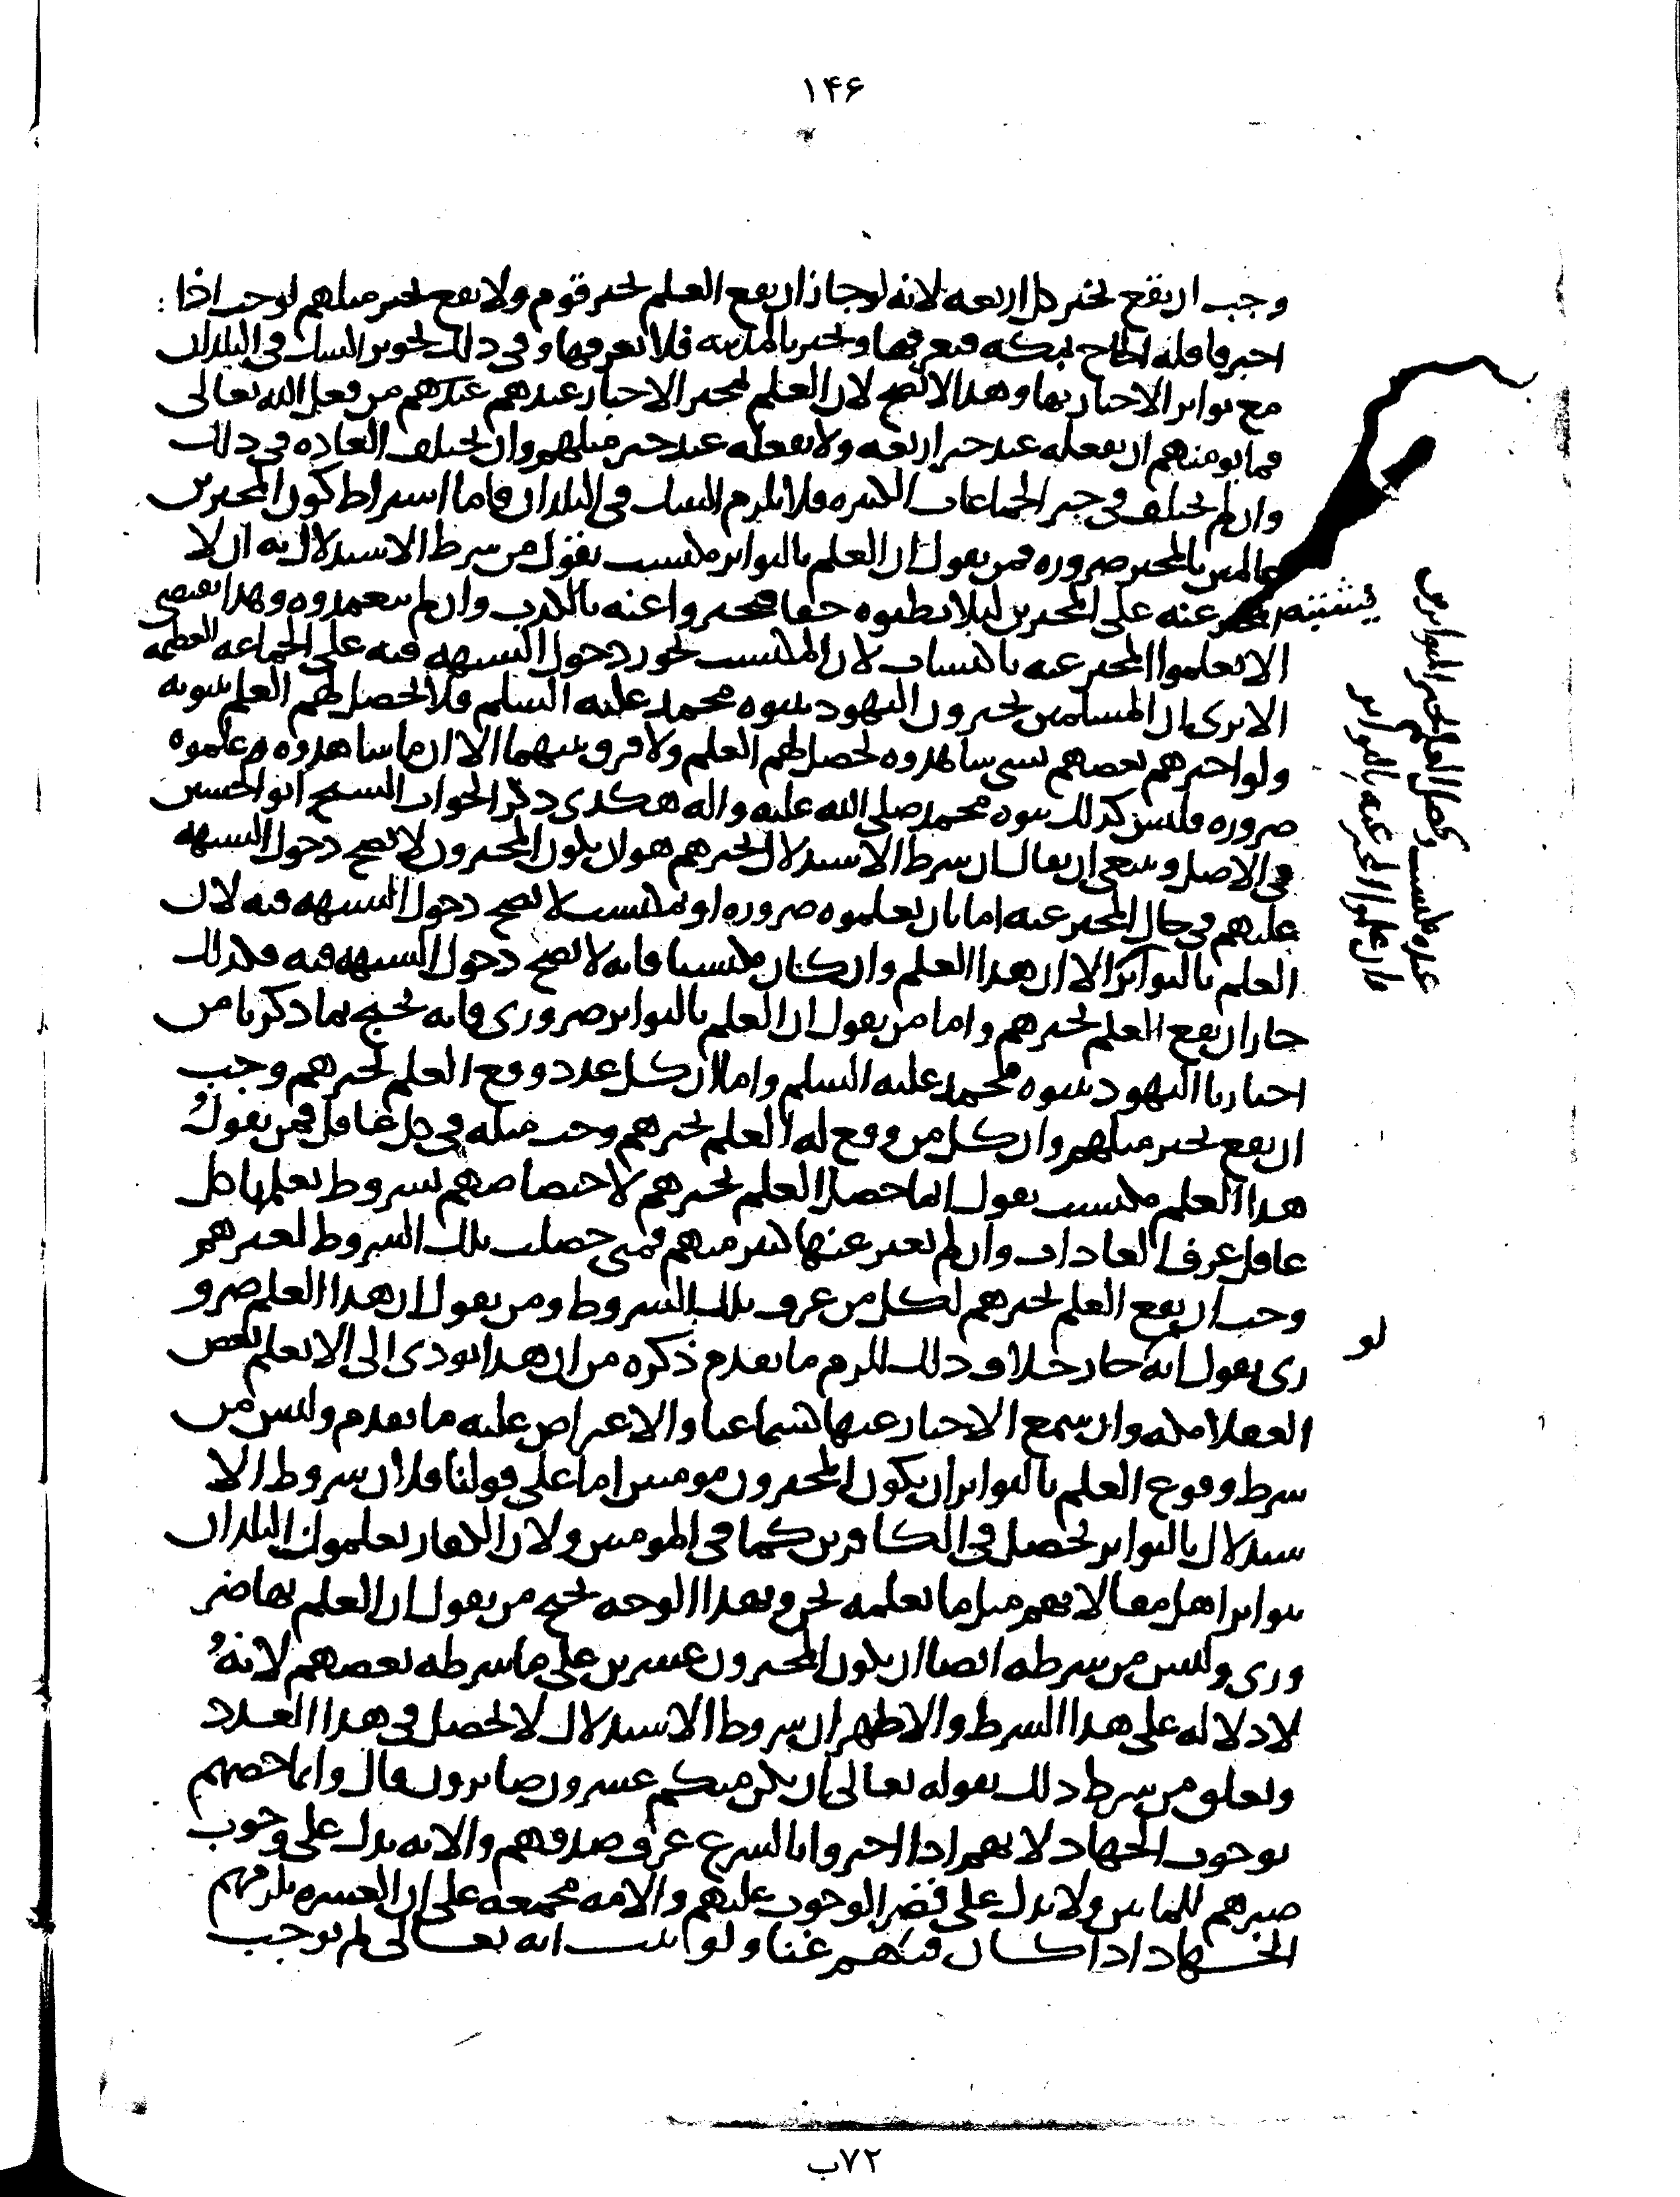 ١۴۶
وجب ان يقع بخبر كل اربعه لانه لو جاز ان يقع العلم بخبر قوم ولا يقع بخبر مثلهم لوجب اذا
اخبرنا قافله الحاج بمكه فنعرفها وتخبر بالمدينه فلا نعرفها وفي ذلك تجويز الشك في البلدان
مع تواتر الاخبار بها وهذا لا يصح لان العلم بمخبر الاخبار عندهم من فعل الله تعالى
فما يومنهم ان يفعله عند خبر اربعه ولا يفعله عند خبر مثلهم وان تختلف العاده في ذلك
وان لم تختلف في خبر الجماعات الكثيره فلا يلزم الشك في البلدان فاما اشتراط كون المخبرين
عالمين بالمخبر ضروره فمن يقول ان العلم بالتواتر مكتسب يقول من شرط الاستدلال به ان لا
يشتبه المخبر عنه على المخبرين ليلا يظنوه حقا فيخبروا عنه بالكذب وان لم يتعمدوه وهذا يقتضي
الا يعلموا المخبر عنه باكتساب لان المكتسب يجوز دخول الشبهه فيه على الجماعه العظيمه
الا ترى ان المسلمين يخبرون اليهود بنبوه محمد عليه السلم فلا يحصل لهم العلم بنبوته
ولو اخبرهم بعضهم بشي شاهدوه لحصل لهم العلم ولا فرق بينهما الا ان ما شاهدوه علموه
ضروره وليس كذلك نبوه محمد صلى الله عليه واله هكذى ذكر الجواب الشيخ ابو الحسين
في الاصل وينبغي ان يقال ان شرط الاستدلال بخبرهم هو ان يكون المخبرون لا يصح دخول الشبهه
عليهم في حال المخبر عنه اما بان يعلموه ضروره او بمكتسب لا يصح دخول الشبهه فيه لان
العلم بالتواتر الا ان هذا العلم وان كان مكتسبا فانه لا يصح دخول الشبهه فيه فكذلك
جاز ان يقع العلم بخبرهم واما من يقول ان العلم بالتواتر ضروري فانه يحتج بما ذكرنا من
اخبارنا اليهود بنبوه محمد عليه السلم واما ان كل عدد وقع العلم بخبرهم وجب
ان يقع بخبر مثلهم وان كل من وقع له العلم بخبرهم وجب مثله في كل عاقل فمن يقول
هذا العلم مكتسب يقول انما حصل العلم بخبرهم لاختصاصهم بشروط يعلمها كل
عاقل عرف العادات وان لم يعبر عنها كثير منهم فمتى حصلت تلك الشروط لغيرهم
وجب ان يقع العلم بخبرهم لكل من عرف تلك الشروط ومن يقول ان هذا العلم ضرو
ري يقول انه لو جاز خلاف ذلك للزم ما تقدم ذكره من ان هذا يودي الى الا يعلم بعض
العقلا مكه وان سمع الاخبار عنها كسماعنا والاعتراض عليه ما تقدم وليس من
شرط وقوع العلم بالتواتر ان يكون المخبرون مومنين اما على قولنا فلان شروط الا
ستدلال بالتواتر تحصل في الكافرين كما في المومنين ولان الكفار يعلمون البلدان
بتواتر اهل مقالاتهم مثل ما نعلمه نحن وبهذا الوجه يحتج من يقول ان العلم بها ضر
وري وليس من شرطه ايضا ان يكون المخبرون عشرين على ما شرطه بعضهم لانهُ
لا دلاله على هذا الشرط والاظهر ان شروط الاستدلال لا تحصل في هذا العدد
وتعلق من شرط ذلك بقوله تعالى ان يكن منكم عشرون صابرون قال وانما خصهم
بوجوب الجهاد لانهم اذا اخبروا بالشرع عرف صدقهم والايه تدل على وجوب
صبرهم للمايتين ولا تدل على قصر الوجوب عليهم والامه مجمعه على ان العشره يلزمهم
الجهاد اذا كان فيهم غنا ولو ثبت انه تعالى لم يوجب
يشتبه
عنده مكتسب ويحصل العلم بخبر المتواترين
بان علموا المخبر عنه بالتواتر
لو
٧٢ب